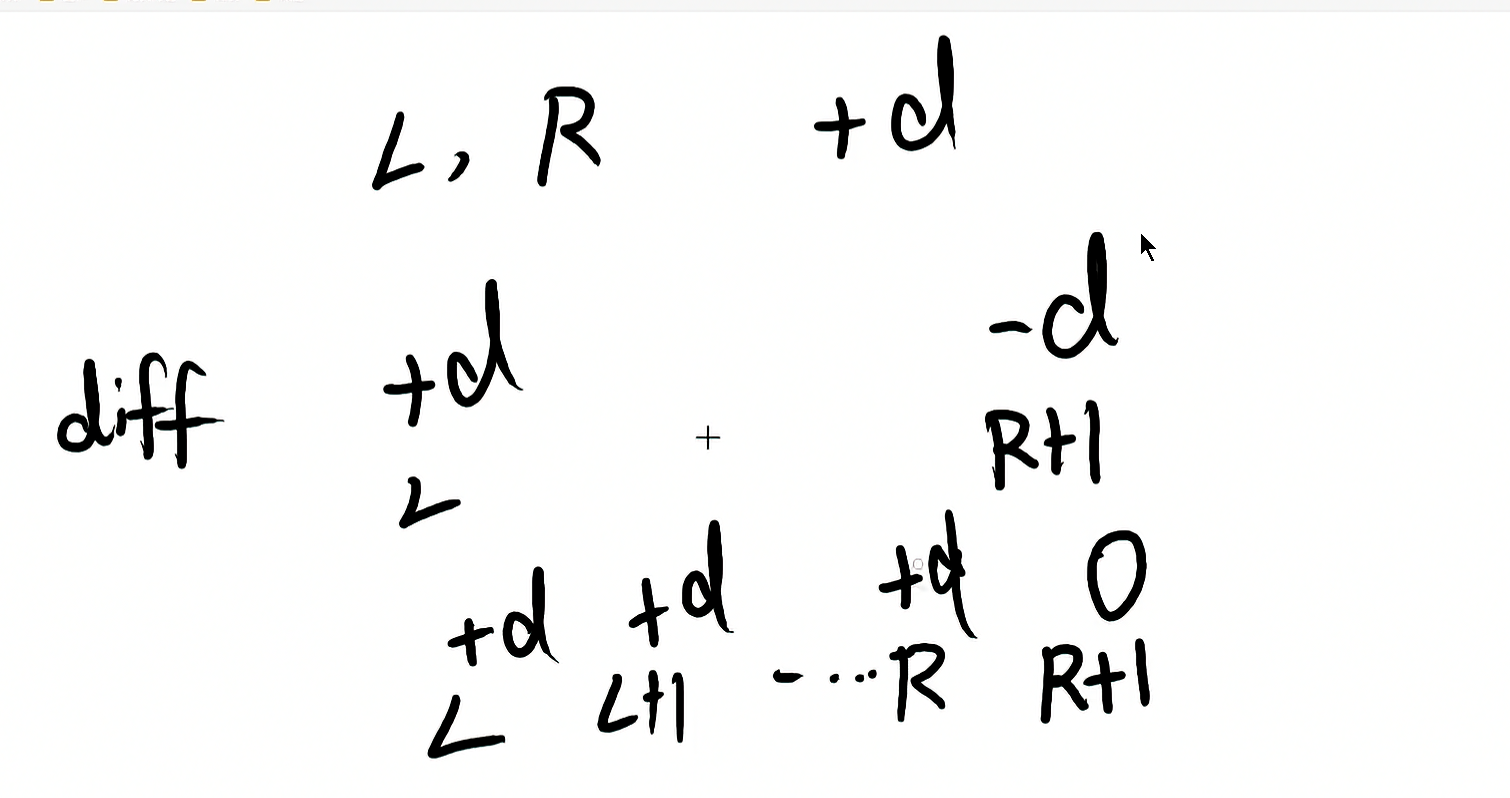 L, R +d
+d -d
diff
L R+1
+d +d +d 0
L L+1 - ... R R+1